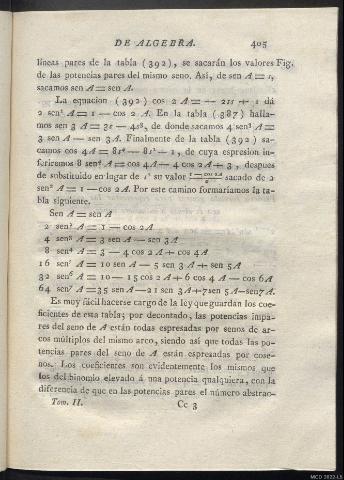 DE ALGEBRA. 405
líneas pares de la tabla (392), se sacarán los valores Fig.
de las potencias pares del mismo seno. Así, de sen A = 1,
sacamos sen A = sen A.
La equacion (392) cos 2 A = — 2ss + 1 dá
2 sen² A = 1 — cos 2 A. En la tabla (387) halla-
mos sen 3 A = 3s — 4s³, de donde sacamos 4 sen³ A =
3 sen A — sen 3 A. Finalmente de la tabla (392) sa-
camos cos 4A = 8s⁴ — 8s² + 1, de cuya espresion in-
feriremos 8 sen⁴ A = cos 4A — 4 cos 2A + 3, despues
de substituido en lugar de s² su valor (1 — cos 2A)/2 sacado de 2
sen² A = 1 — cos 2A. Por este camino formaríamos la ta-
bla siguiente.
Sen A = sen A
2 sen² A = 1 — cos 2A
4 sen³ A = 3 sen A — sen 3 A
8 sen⁴ A = 3 — 4 cos 2 A + cos 4 A
16 sen⁵ A = 10 sen A — 5 sen 3 A + sen 5 A
32 sen⁶ A = 10 — 15 cos 2 A + 6 cos 4 A — cos 6A
64 sen⁷ A = 35 sen A — 21 sen 3A + 7 sen 5 A — sen 7A.
Es muy facil hacerse cargo de la ley que guardan los coe-
ficientes de esta tabla; por decontado, las potencias impa-
res del seno de A están todas espresadas por senos de ar-
cos múltiplos del mismo arco, siendo así que todas las po-
tencias pares del seno de A están espresadas por cose-
nos. Los coeficientes son evidentemente los mismos que
los del binomio elevado á una potencia qualquiera, con la
diferencia de que en las potencias pares el número abstrac-
Tom. II. Cc 3
MCD 2022-L5